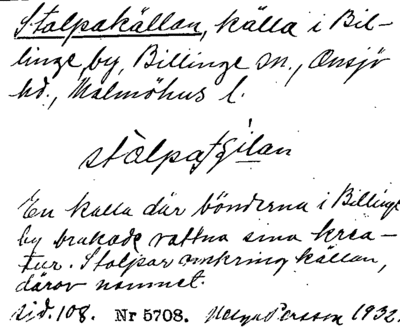 Stolpakällan, källa i Bil-
linge by, Billinge sn., Onsjö
hd., Malmöhus l.
En kalla där bönderna i Billinge
by brukade vattna sina krea-
tur. Stolpar omkring källan,
därav namnet.
sid. 108. Nr 5708. Helge Persson 1932.